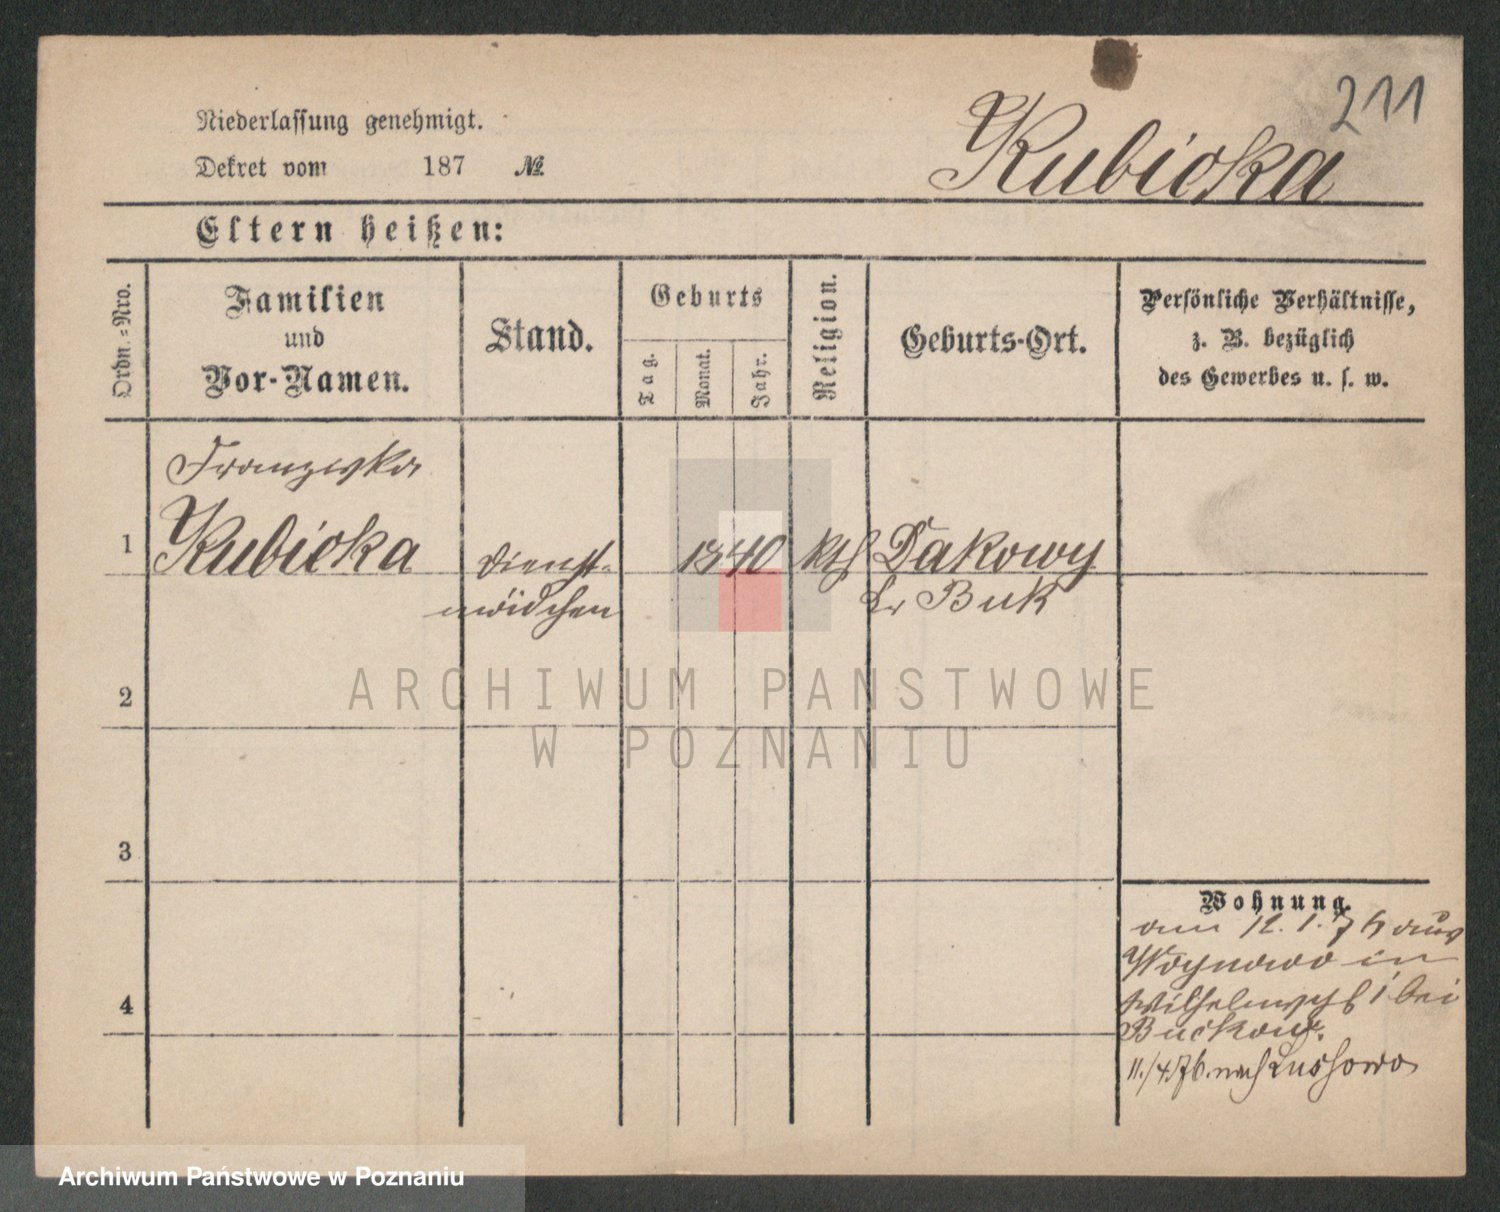 211
Niederlassung genehmigt.
Dekret vom 187 №
Kubicka
Eltern heißen:
Ordn.=Nro.
Familien
und
Vor-Namen.
Stand.
Geburts
Tag.
Monat.
Jahr.
Religion.
Geburts-Ort.
Persönliche Verhältnisse,
z. B. bezüglich
des Gewerbes u. s. w.
Franziska
1 Kubicka Dienst- 1840 kth Dakowy
mädchen Kr Buk
2
3
4
Wohnung.
am 12. 1. 76 aus
Woynowo in
bei
Buckow.
11./4 76. nach Lussowo
ARCHIWUM PANSTWOWE
W POZNANIU
Archiwum Państwowe w Poznaniu